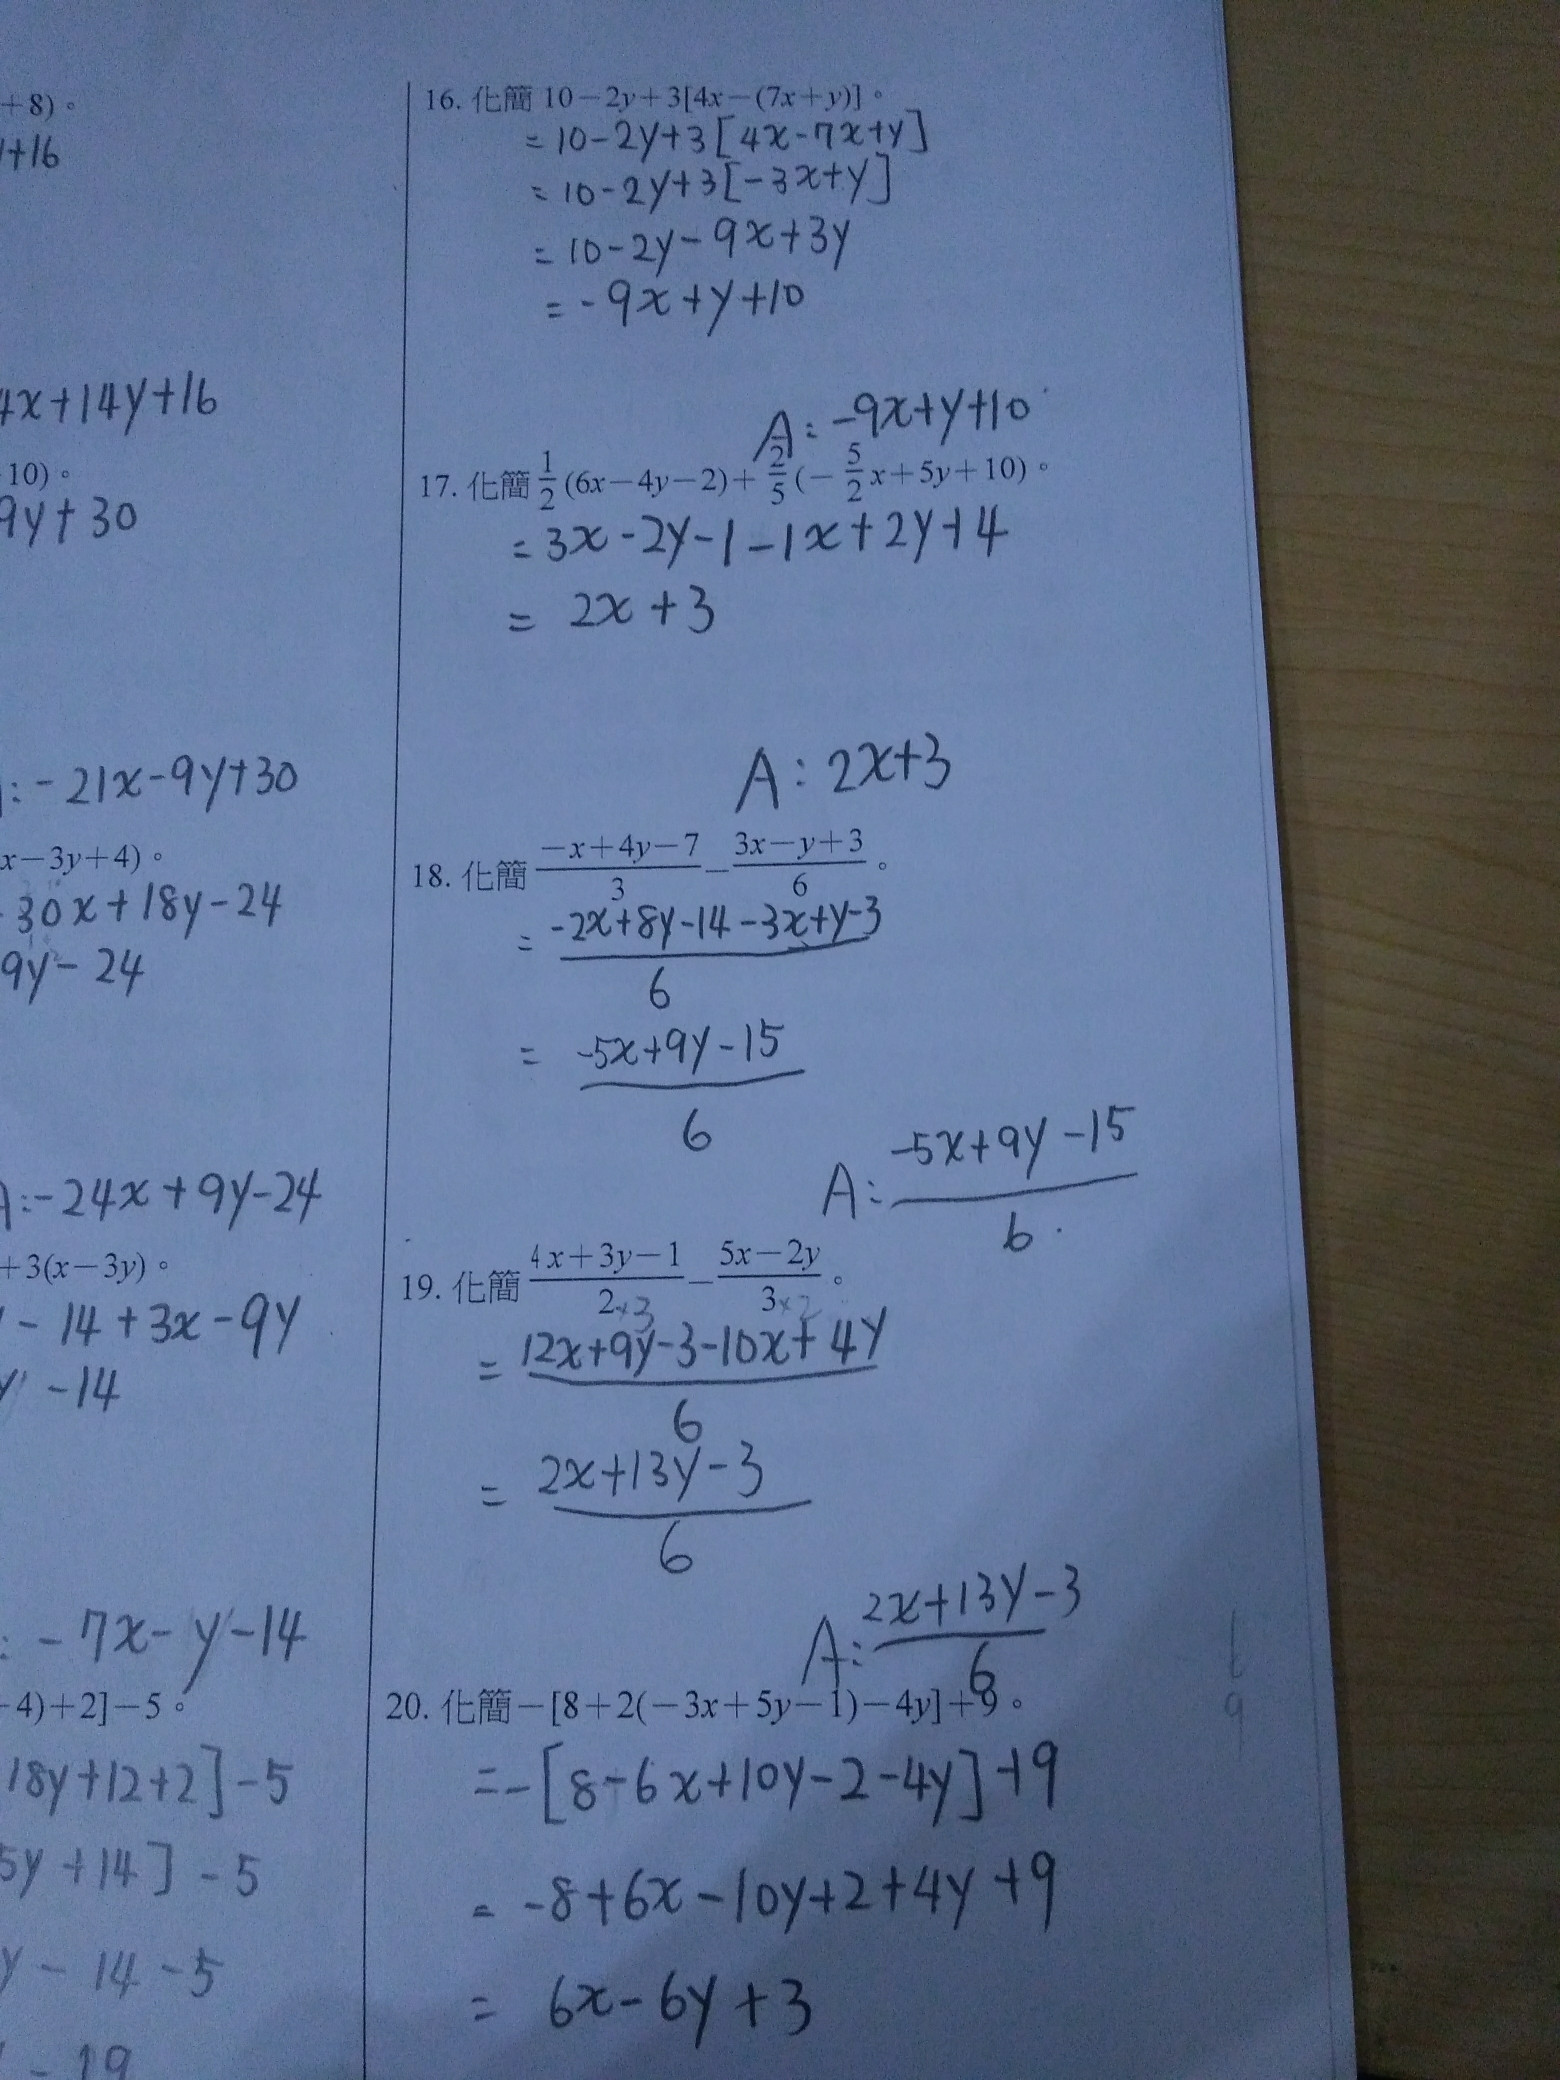 +8)。
y+16
4x+14y+16
10)。
9y+30
A:-21x-9y+30
x-3y+4)。
30x+18y-24
9y-24
A:-24x+9y-24
+3(x-3y)。
-14+3x-9y
y-14
:-7x-y-14
-4)+2]-5。
18y+12+2]-5
5y+14]-5
y-14-5
-19
16. 化簡 10-2y+3[4x-(7x+y)]。
=10-2y+3[4x-7x+y]
=10-2y+3[-3x+y]
=10-2y-9x+3y
=-9x+y+10
A:-9x+y+10
17. 化簡 1/2(6x-4y-2)+2/5(-5/2x+5y+10)。
=3x-2y-1-1x+2y+4
=2x+3
A:2x+3
18. 化簡 (-x+4y-7)/3-(3x-y+3)/6。
=(-2x+8y-14-3x+y-3)/6
=(-5x+9y-15)/6
A:(-5x+9y-15)/6
19. 化簡 (4x+3y-1)/2-(5x-2y)/3。
×3 ×2
=(12x+9y-3-10x+4y)/6
=(2x+13y-3)/6
A:(2x+13y-3)/6
20. 化簡-[8+2(-3x+5y-1)-4y]+9。
=-[8-6x+10y-2-4y]+9
=-8+6x-10y+2+4y+9
=6x-6y+3